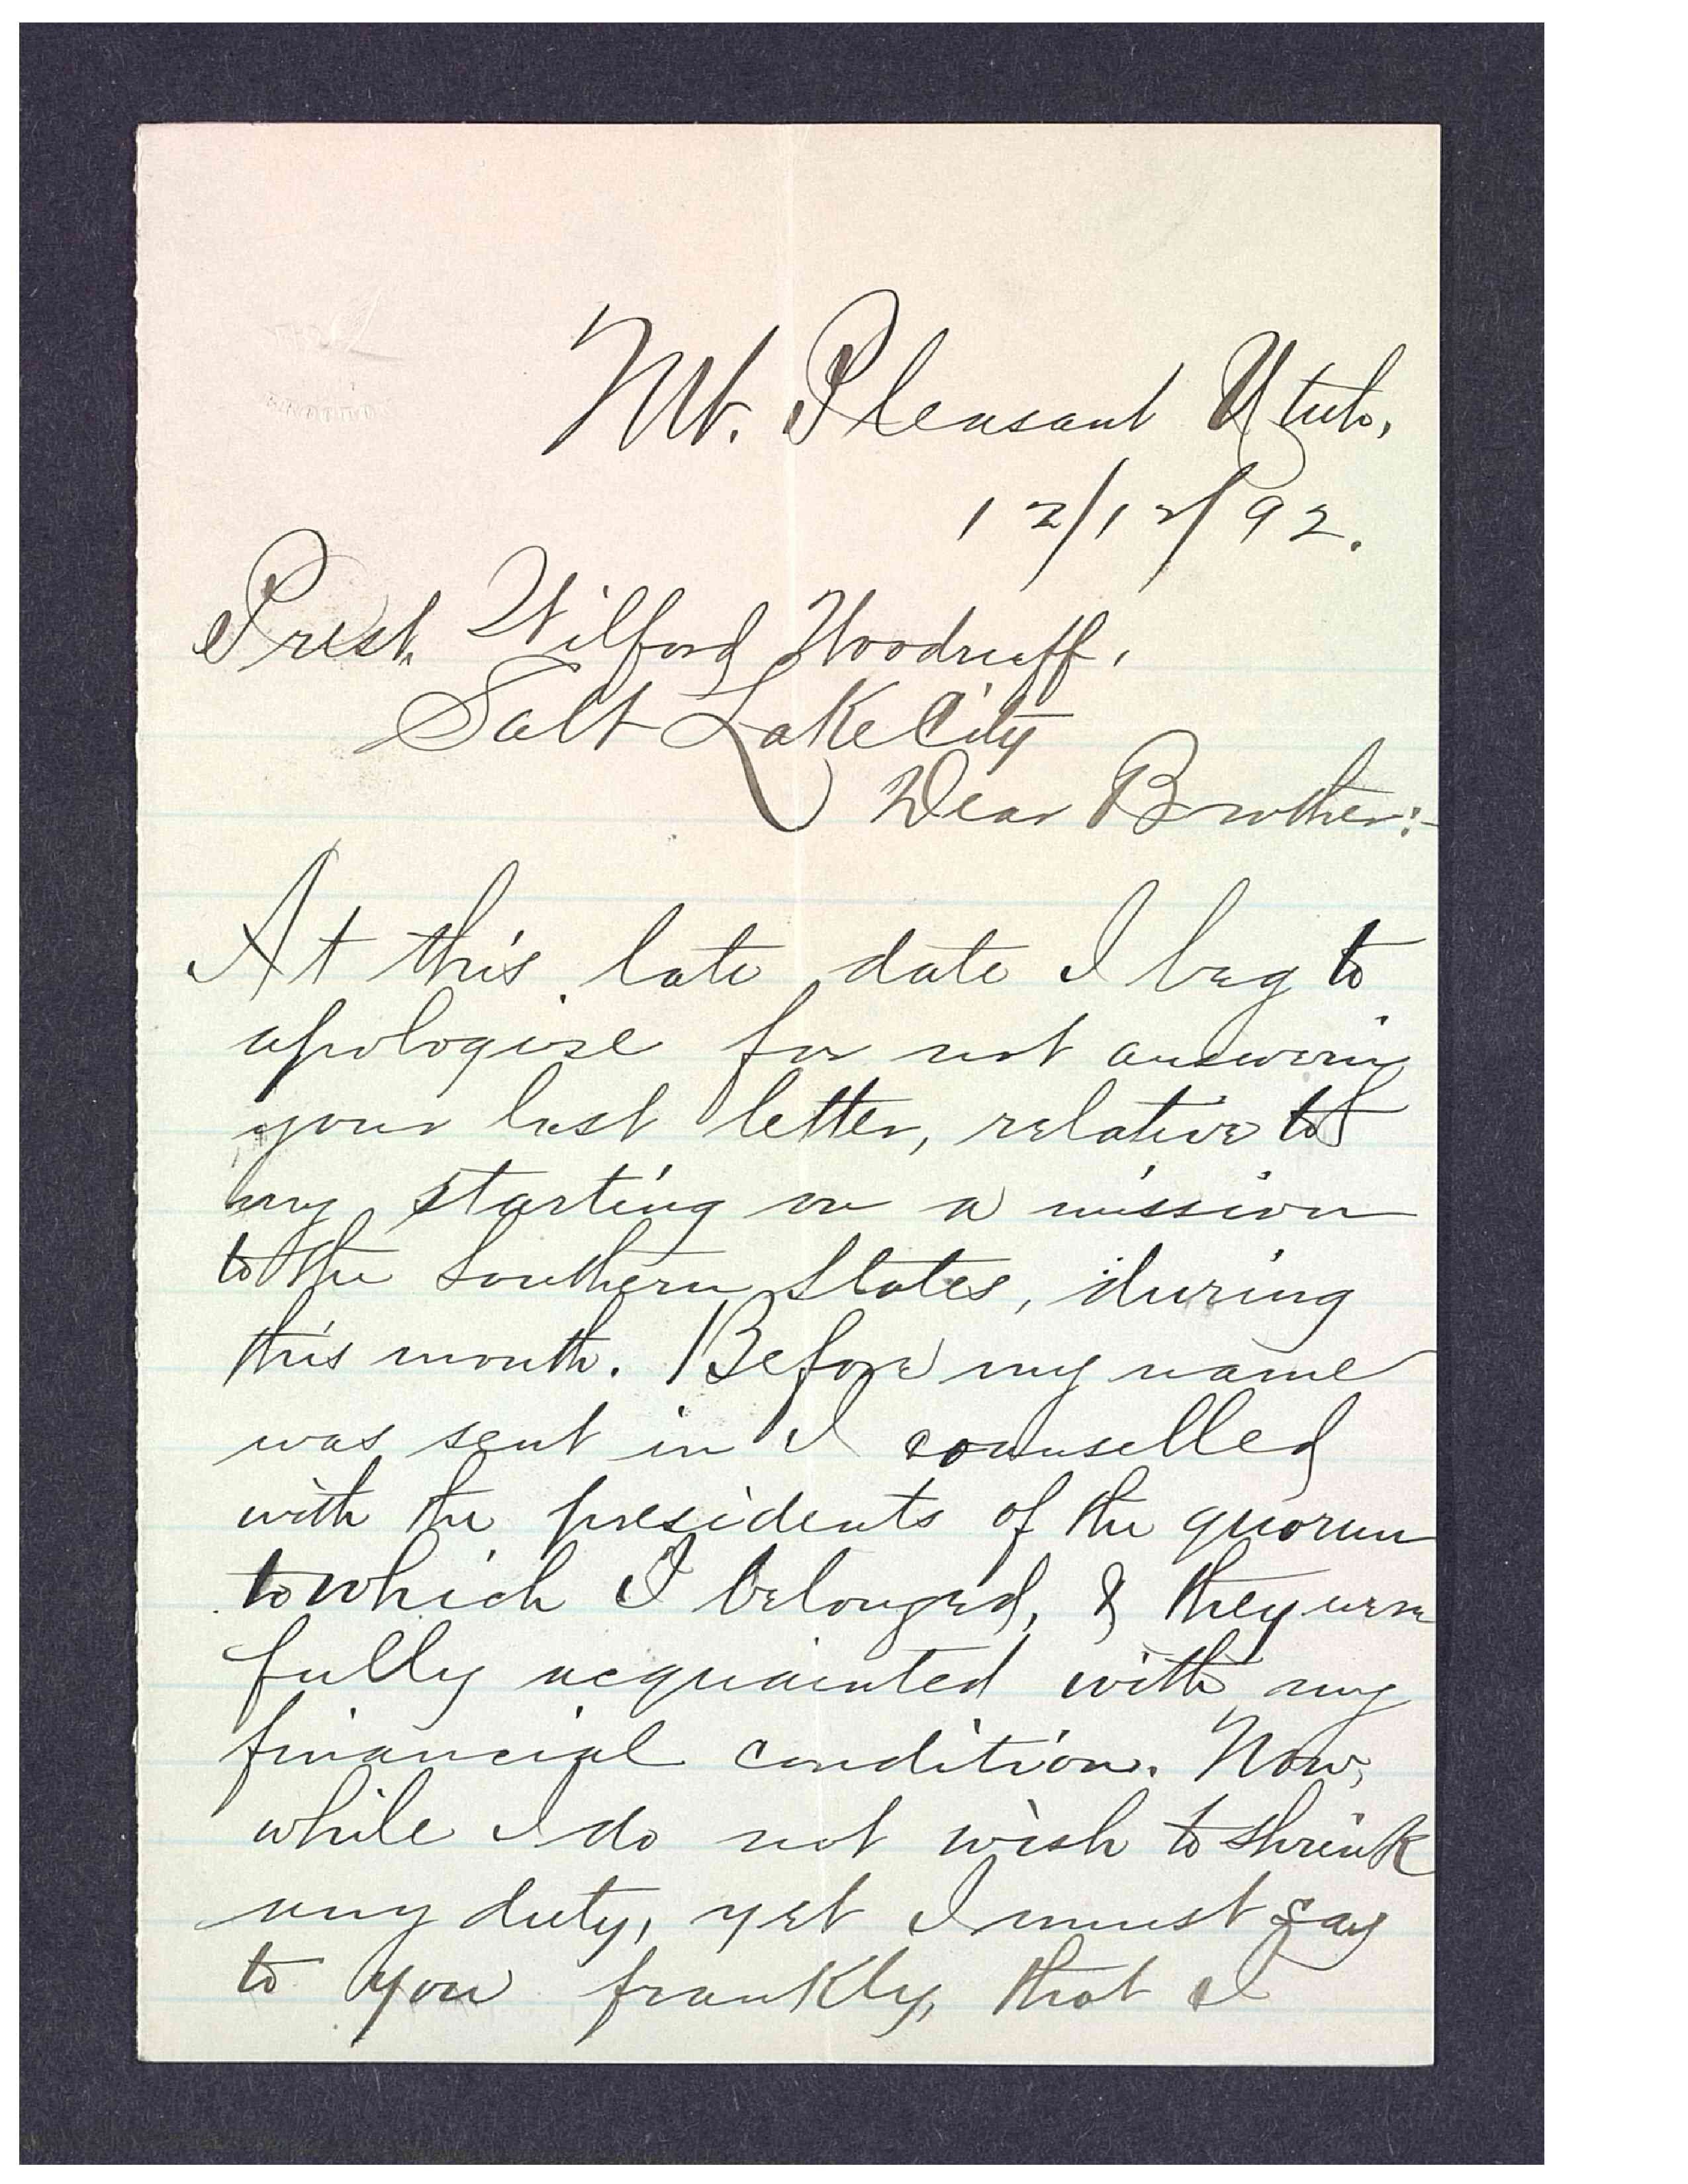 Mt. Pleasant Utah,
12/12/92.
Prest. Wilford Woodruff,
Salt Lake City
Dear Brother:-
At this late date I beg to
apologise for not answering
your last letter, relative to
my starting on a mission
to the Southern States, during
this month. Before my name
was sent in I counselled
with the presidents of the quorum
to which I belonged, & they were
fully acquainted with my
financial condition. Now,
while I do not wish to shrink
my duty, yet I must say
to you frankly, that I